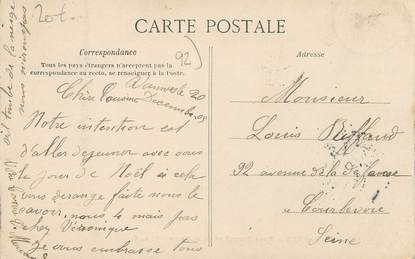 20t
CARTE POSTALE
Correspondance
Tous les pays étrangers n'acceptent pas la
correspondance au recto, se renseigner à la Poste.
92
Adresse
le 20
Décembre 05
Chère Cousine
Notre intention est
d'aller dejeuner avec vous
le jour de Noël si cela
vous derange faite nous le
savoir, nous le mais pas
chez Véronique
Je vous embrasse tous
s'il tombe de la neige
nous
Monsieur
Louis Riffaud
92 avenue de la Défense
à Courbevoie
Seine